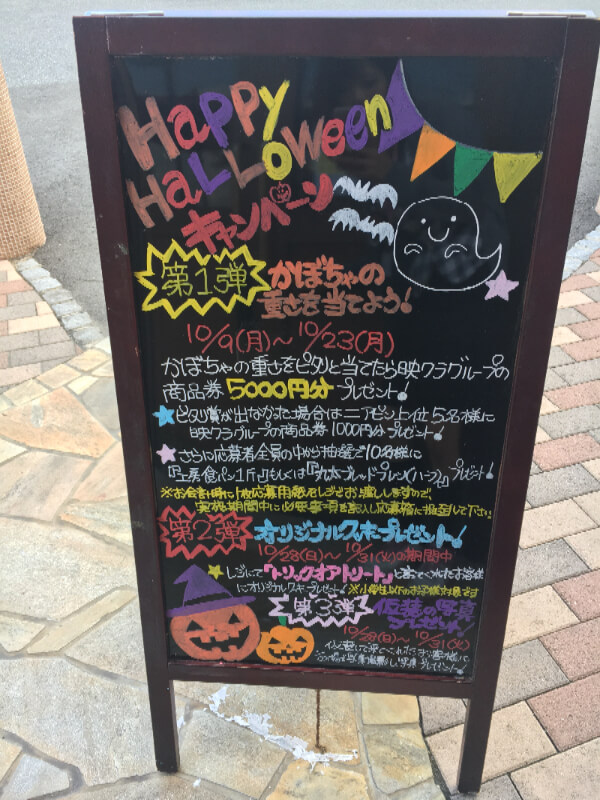 Happy
Halloween
キャンペーン
第1弾 かぼちゃの
重さを当てよう!
10/9(月)〜10/23(月)
かぼちゃの重さをピタリと当てたら映クラグループの
商品券5000円分プレゼント!
★ピタリ賞が出なかった場合はニアピン上位5名様に
映クラグループの商品券1000円分プレゼント!
★さらに応募者全員の中から抽選で10名様に
『工房食パン1斤』もしくは『丸太ブレッドプレーン(ハーフ)』プレゼント!
※お会計時に1枚応募用紙をレジでお渡ししますので、
実施期間中に必要事項を記入し応募箱に投函して下さい
第2弾 オリジナルクッキープレゼント!
10/28(日)〜10/31(火)の期間中
★レジにて『トリックオアトリート』と言ってくれたお客様
にオリジナルクッキープレゼント! ※小学生以下のお客様対象です
第3弾 仮装の写真
プレゼント!
10/28(日)〜10/31(火)
仮装して来てくれたお客様に
プレゼント!